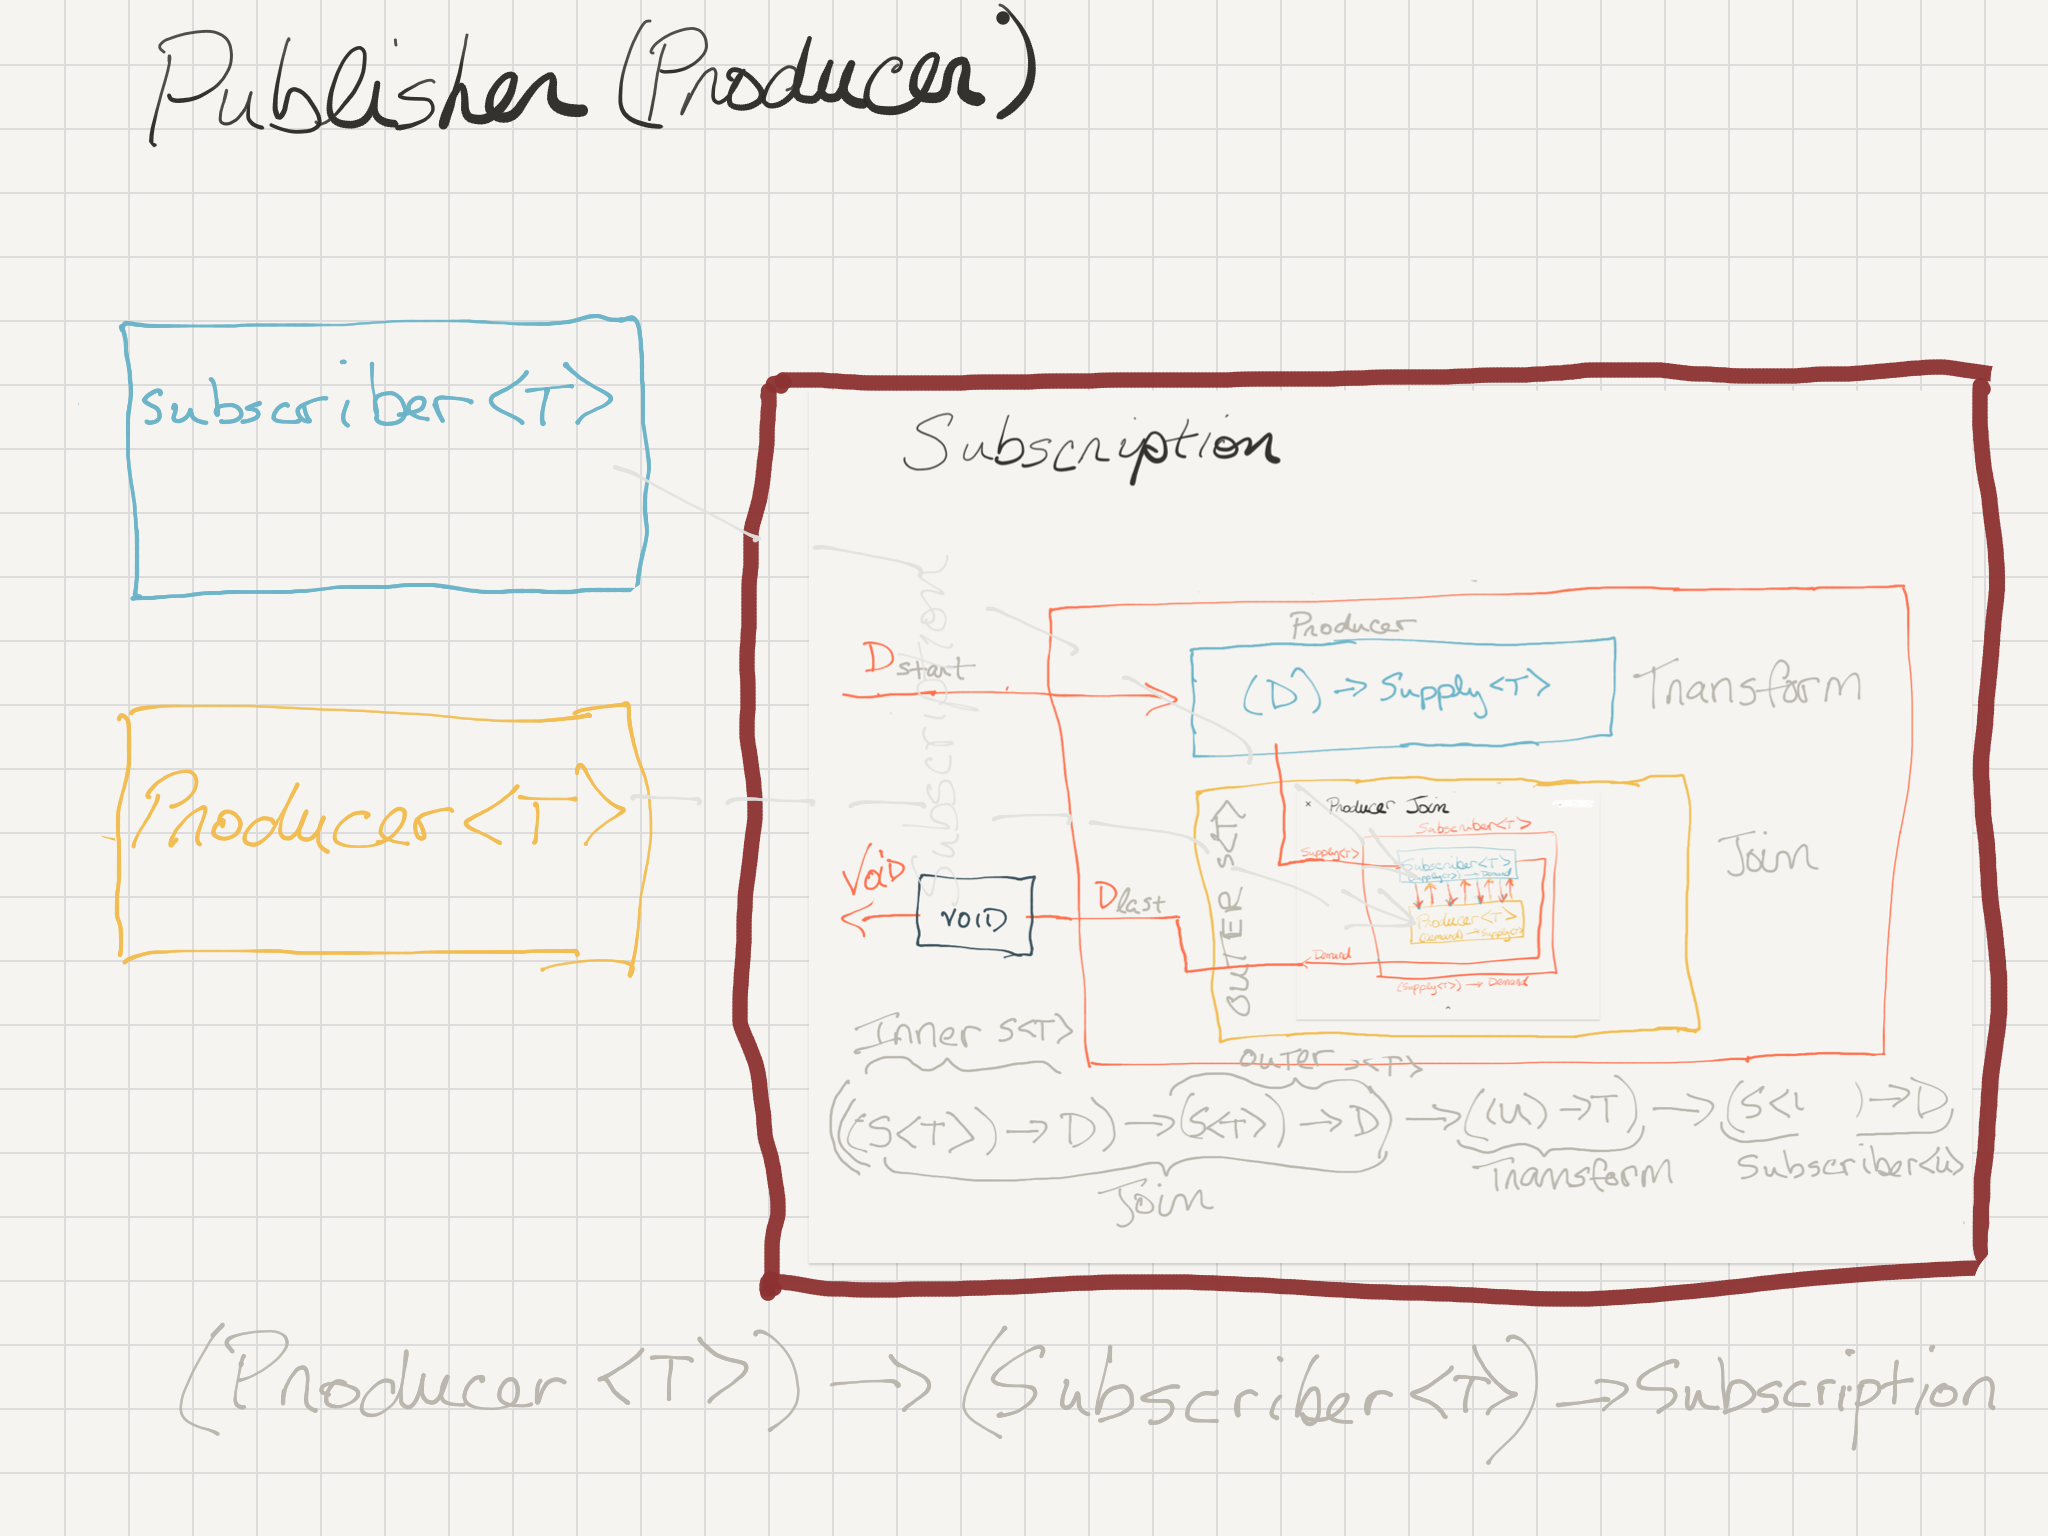 Publisher (Producer)
subscriber<T>
Producer<T>
Subscription
Subscription
Dstart
Producer
(D) → Supply<T>
Transform
Join
OUTER S<T>
× Producer Join
Subscriber<T>
Supply<T>
Subscriber<T>
(Supply<T>) → Demand
Producer<T>
(Demand) → Supply<T>
Demand
(Supply<T>) → Demand
VoiD
VOID
Dlast
Inner S<T>
outer S<T>
((S<T>) → D) → (S<T>) → D) → ((u) → T) → (S< ) → D
Join
Transform
Subscriber<u>
(Producer <T>) → (Subscriber <T>) → Subscription